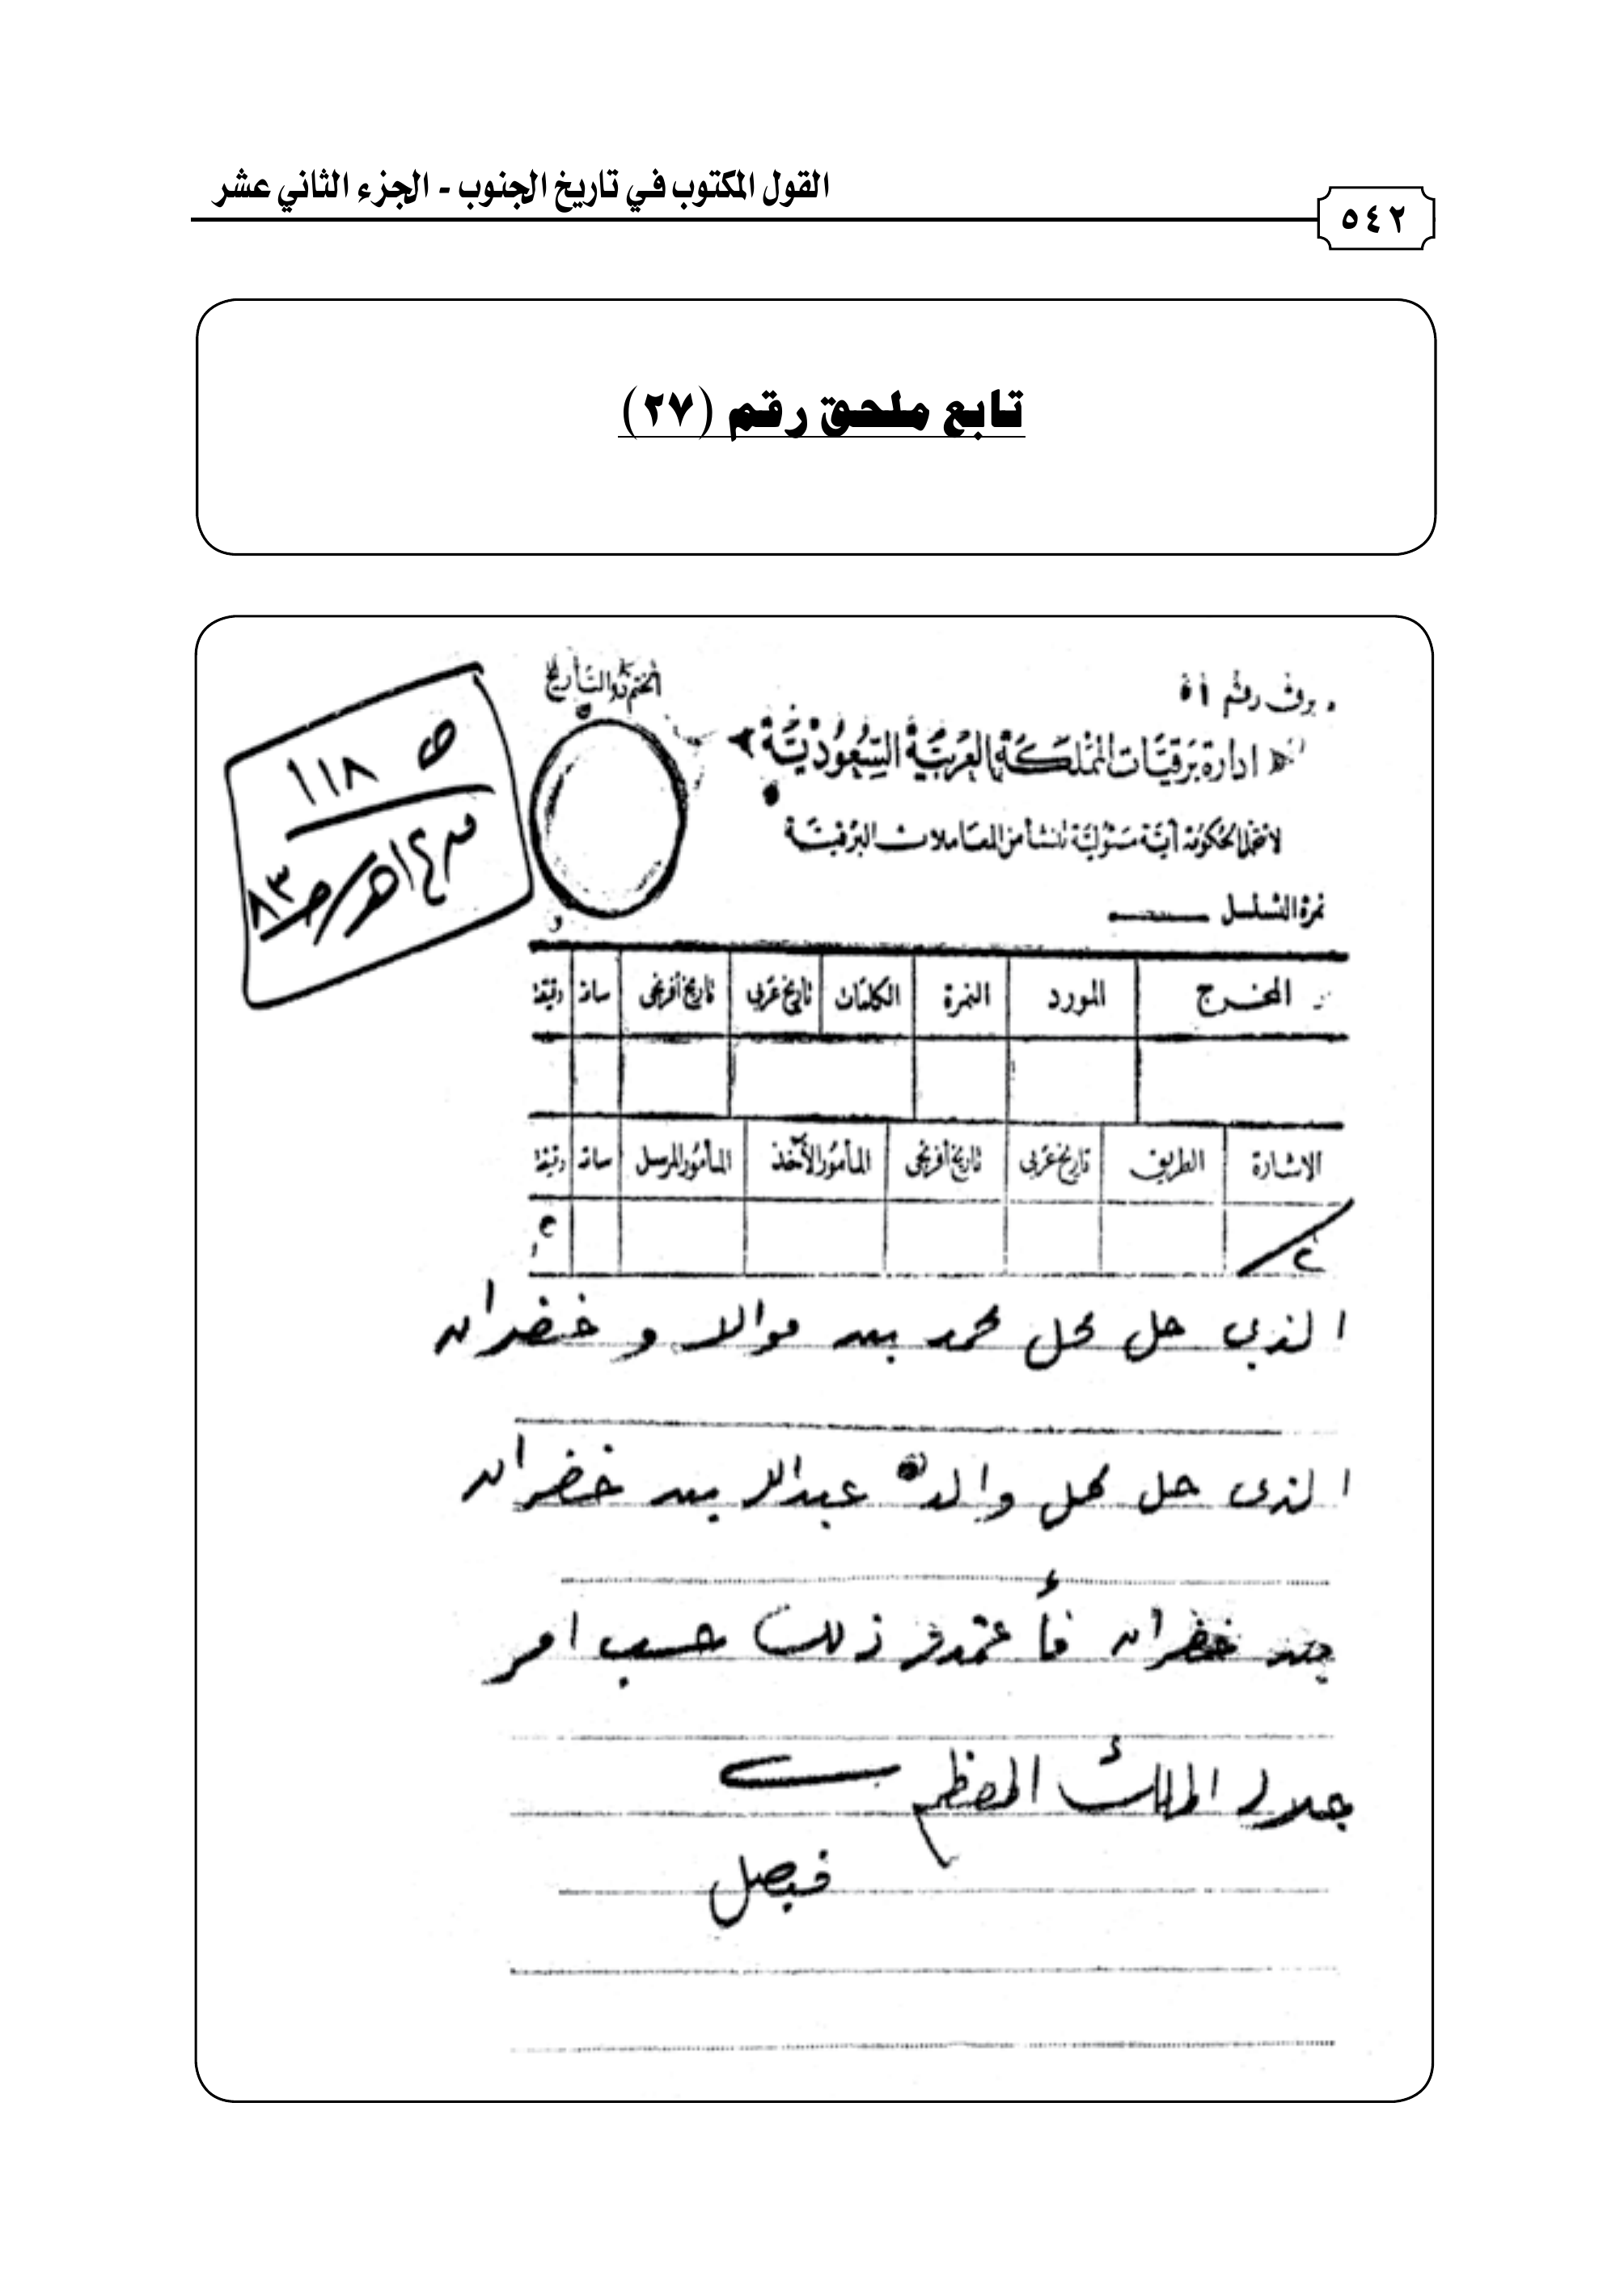 القول المكتوب في تاريخ الجنوب - الجزء الثاني عشر
٥٤٢
تابع ملحق رقم (٢٧)
برق رقم ٥١
الختم والتاريخ
ادارة برقيات المملكة العربية السعودية
ص ١١٨
لا تتحمل الحكومة أية مسئولية تنشأ من المعاملات البرقية
نمرة التسلسل
المخرج المورد النمرة الكلمات تاريخ عربي تاريخ أفرنجي ساعة دقيقة
الاشارة الطريق تاريخ عربي تاريخ أفرنجي المأمور الآخذ المأمور المرسل ساعة دقيقة
الذي حل محل محمد بن و خضران
الذي حل محل والده عبدالله بن خضران
بن خضران فأعتمدو ذلك حسب امر
جلالة الملك المعظم
فيصل